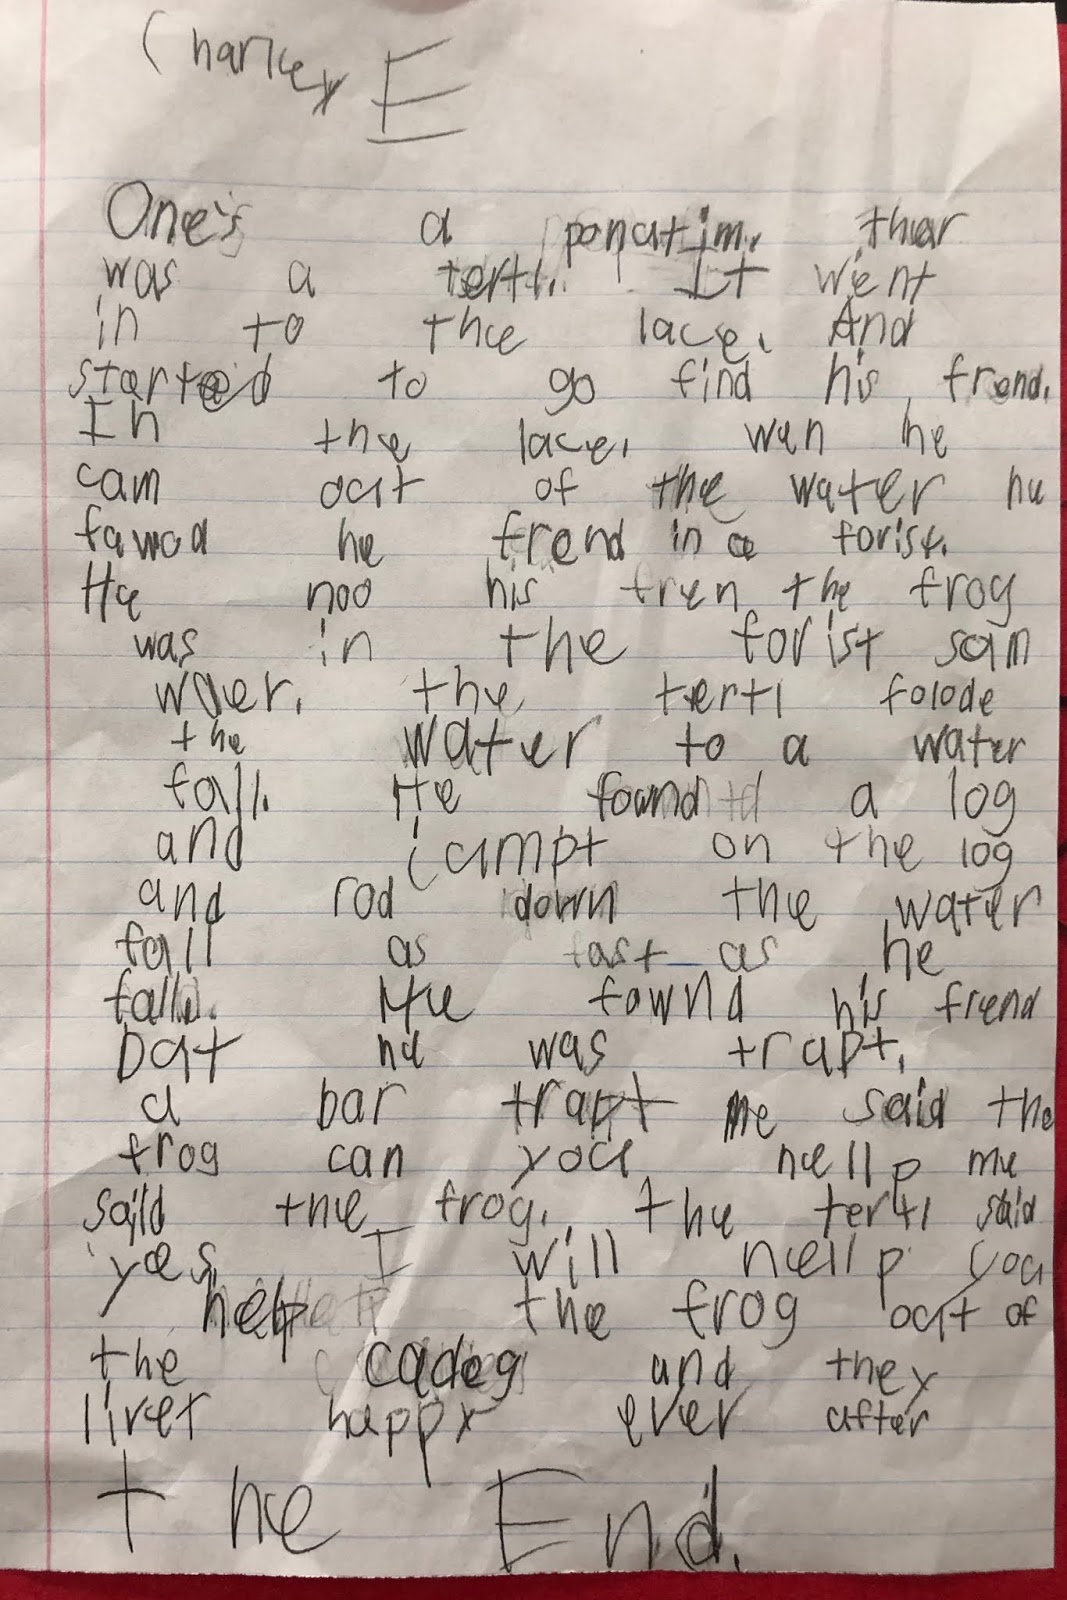 Charley E
One's a ponatim. thar
was a tertl. It went
in to the lace. And
started to go find his frend.
In the lace. wen he
cam oat of the water he
fawod he frend in a forist.
He noo his fren the frog
was in the forist sam
waer. the tertl folode
the water to a water
fall. He found a log
and jumpt on the log
and rod down the water
fall as fast as he
fall. He fownd his frend
bat he was trapt.
a bar trapt me said the
frog can you hellp me
said the frog. the tertl said
yes. I will hellp you
help the frog oat of
the cadeg and they
livet happy ever after
the End.